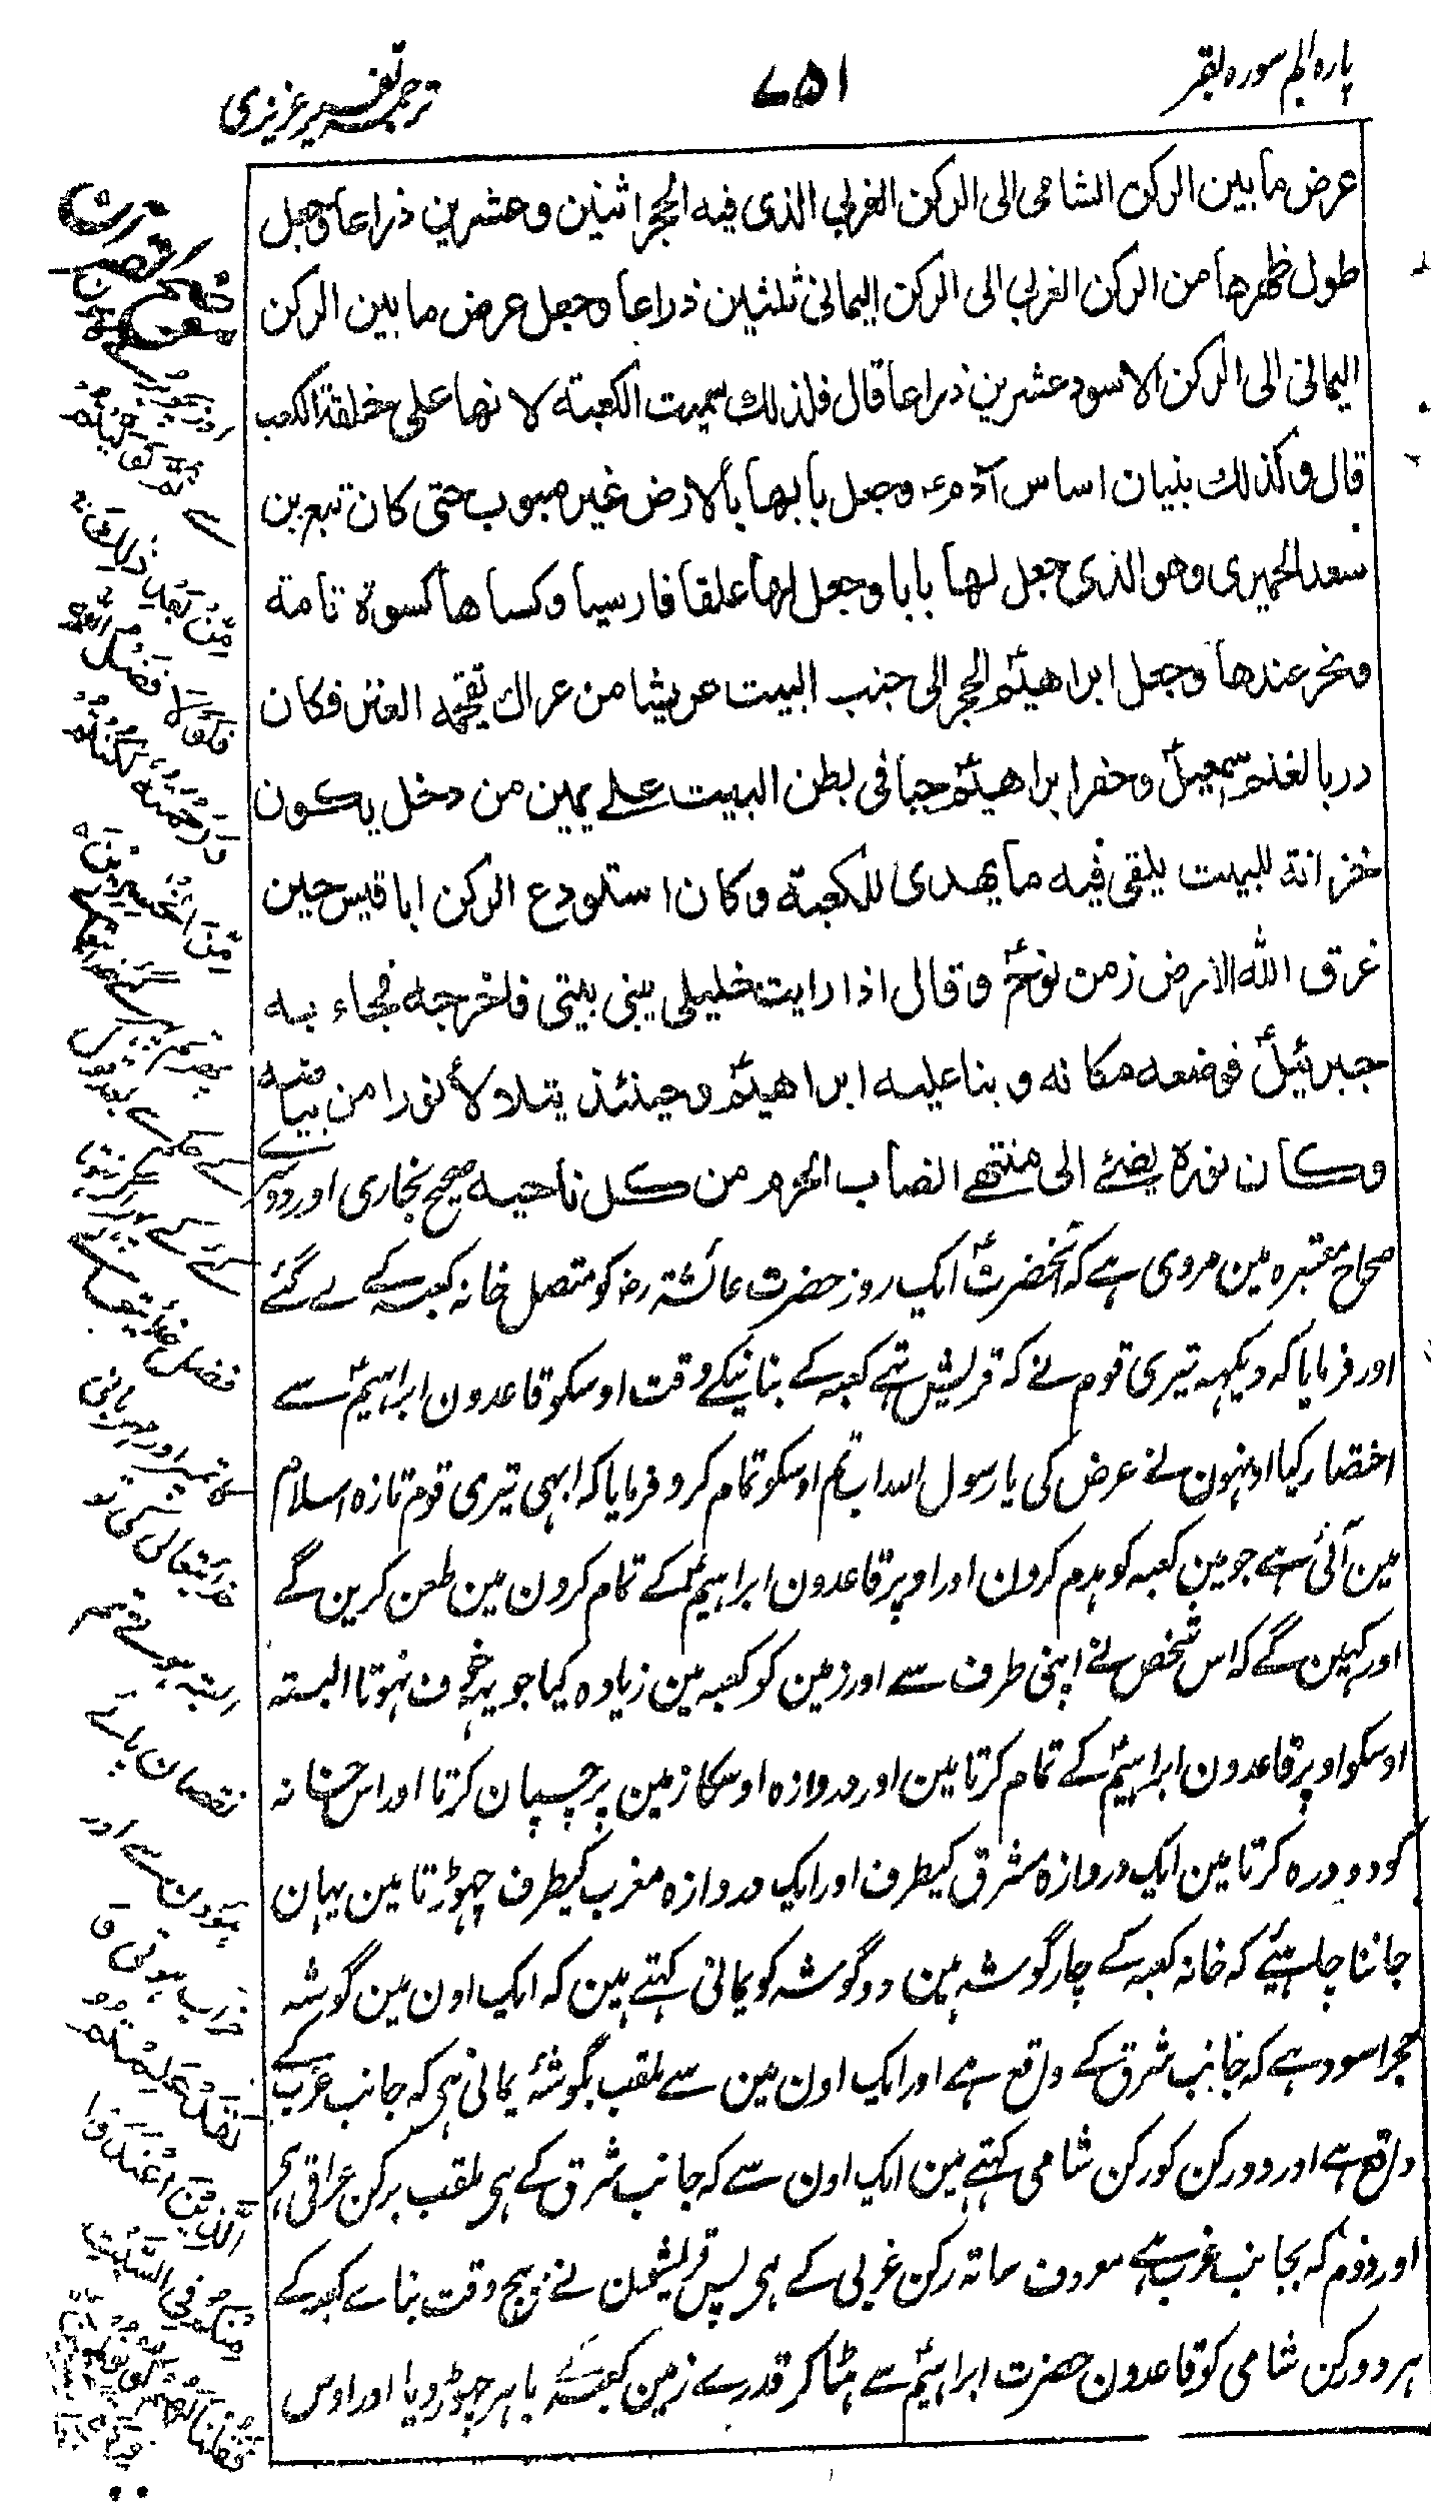 پارہ الم سورہ بقر
۷۵۱
ترجمہ تفسیر عزیزی
عرض ما بین الرکن الشامی الی الرکن الغربی الذی فیه الحجر اثنین و عشرین ذراعا و جعل
طول ظهرها من الرکن الغربی الی الرکن الیمانی ثلثین ذراعا و جعل عرض ما بین الرکن
الیمانی الی الرکن الاسود عشرین ذراعا قال فلذلك سمیت الکعبة لا نها علی خلقة الکعب
قال و کذلك بنیان اساس آدم؏ و جعل بابها بالارض غیر مبوب حتی کان تبع بن
سعد الحمیری و هو الذی جعل لها بابا و جعل لها غلقا فارسیا و کساها کسوة تامة
و نحر عندها و جعل ابراهیمؑ الحجر الی جنب البیت عریشا من عراك یقحمه العنز فکان
دربا لغنم اسمعیلؑ و حفر ابراهیمؑ جبا فی بطن البیت علے یمین من دخل یکون
خزانة للبیت یلقی فیه ما یهدی للکعبة و کان استودع الرکن ابا قیس حین
غرق الله الارض زمن نوحؑ و قال اذا رایت خلیلی یبنی بیتی فاخرجه فجاء به
جبرئیلؑ فوضعه مکانه و بنا علیه ابراهیمؑ و حینئذ یتلا لأ نورا من بیاضه
و کان نوره یضئے الی منتهے انصاب الحرم من کل ناحیه صحیح بخاری اور دوسرے
صحاح معتبرہ مین مروی ہے کہ آنحضرتؐ ایک روز حضرت عائشہ رضہ کو متصل خانہ کعبہ کے لے گئے
اور فرمایا کہ دیکہہ تیری قوم نے کہ قریش تہے کعبہ کے بنانیکے وقت اوسکو قاعدون ابراہیمؑ سے
اختصار کیا اونہون نے عرض کی یا رسول اللہ اب تم اوسکو تمام کرو فرمایا کہ ابہی تیری قوم تازہ اسلام
مین آئی ہے جو مین کعبہ کو ہدم کرون اور اوپر قاعدون ابراہیمؑ کے تمام کرون مین طعن کرین گے
اور کہین گے کہ اس شخص نے اپنی طرف سے اور زمین کو کعبہ مین زیادہ کیا جو یہ خوف نہوتا البتہ
اوسکو اوپر قاعدون ابراہیمؑ کے تمام کرتا مین اور دروازہ اوسکا زمین پر چسپان کرتا اور اس خانہ
کو دو درہ کرتا مین ایک دروازہ مشرق کیطرف اور ایک دروازہ مغرب کیطرف چہوڑتا مین یہان
جاننا چاہیئے کہ خانہ کعبہ کے چار گوشہ ہین دو گوشہ کو یمانی کہتے ہین کہ ایک اون مین گوشہ
حجر اسود ہے کہ جانب شرق کے واقع ہے اور ایک اون مین سے ملقب بگوشہٴ یمانی ہی کہ جانب غرب کے
واقع ہے اور دو رکن کو رکن شامی کہتے ہین ایک اون سے کہ جانب شرق کے ہی ملقب برکن عراقی ہی
اور دوم کہ بجانب غرب ہے معروف ساتہ رکن غربی کے ہی پس قریشون نے بیچ وقت بناے کعبہ کے
ہر دو رکن شامی کو قاعدون حضرت ابراہیمؑ سے ہٹا کر قدرے زمین کعبہ سے باہر چہوڑ دیا اور اوس
مِّنْ بَعْدِ ذٰلِكَ
فَلَوْلَا فَضْلُ اللّٰهِ
عَلَيْكُمْ
وَرَحْمَتُهٗ لَكُنْتُمْ
مِّنَ الْخٰسِرِيْنَ
پھر تم پھر گئے
فضل خدا تعالےٰ
اور مہربانی
خدا تعالی کی تو
البتہ ہوتے تم
نقصان پانے
والون سے اور
الَّذِيْنَ اعْتَدَوْا
مِنْكُمْ فِي السَّبْتِ
فَقُلْنَا لَهُمْ